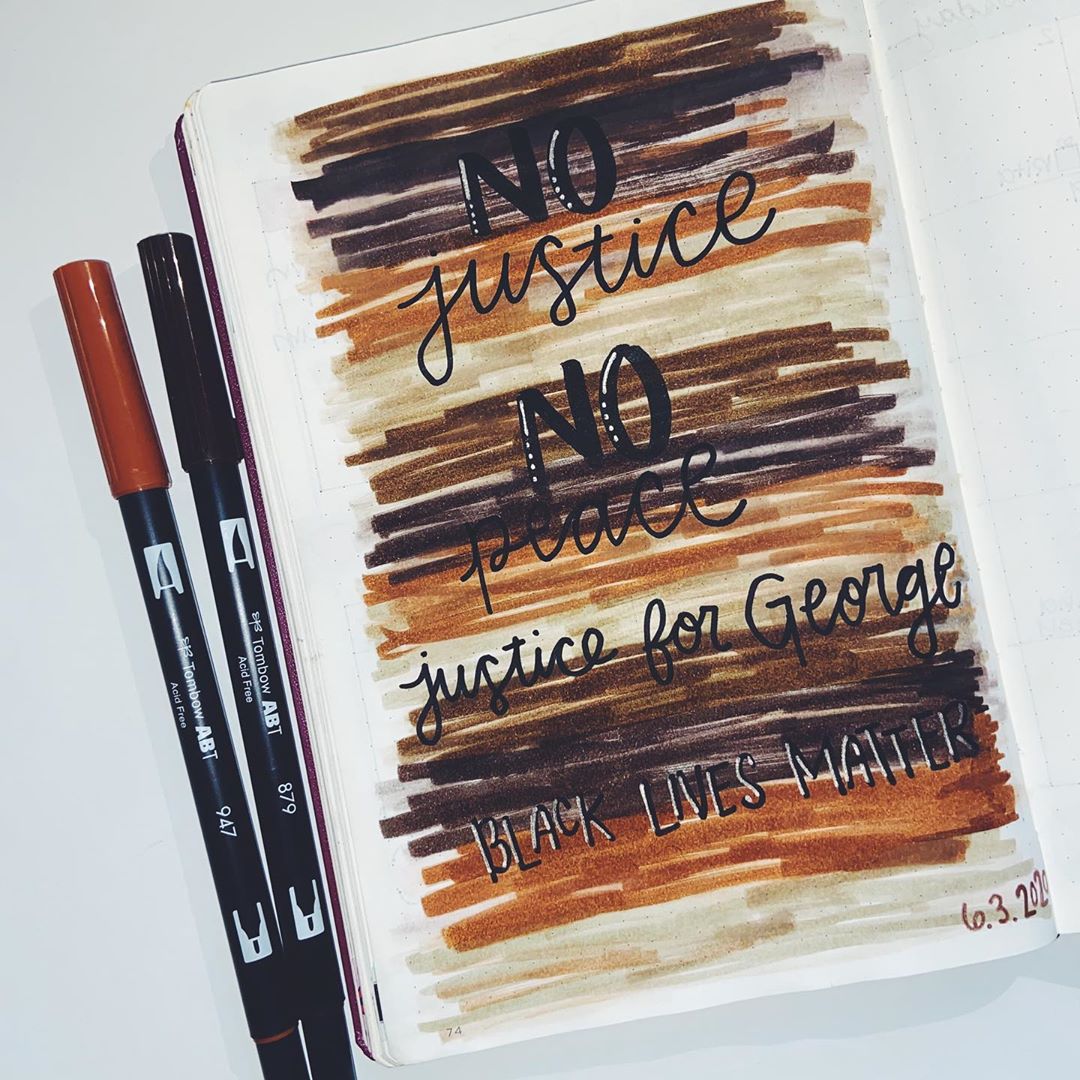 NO
justice
NO
peace
justice for George
BLACK LIVES MATTER
6.3.2020
74
Tombow ABT
Acid Free
947
Tombow ABT
Acid Free
879